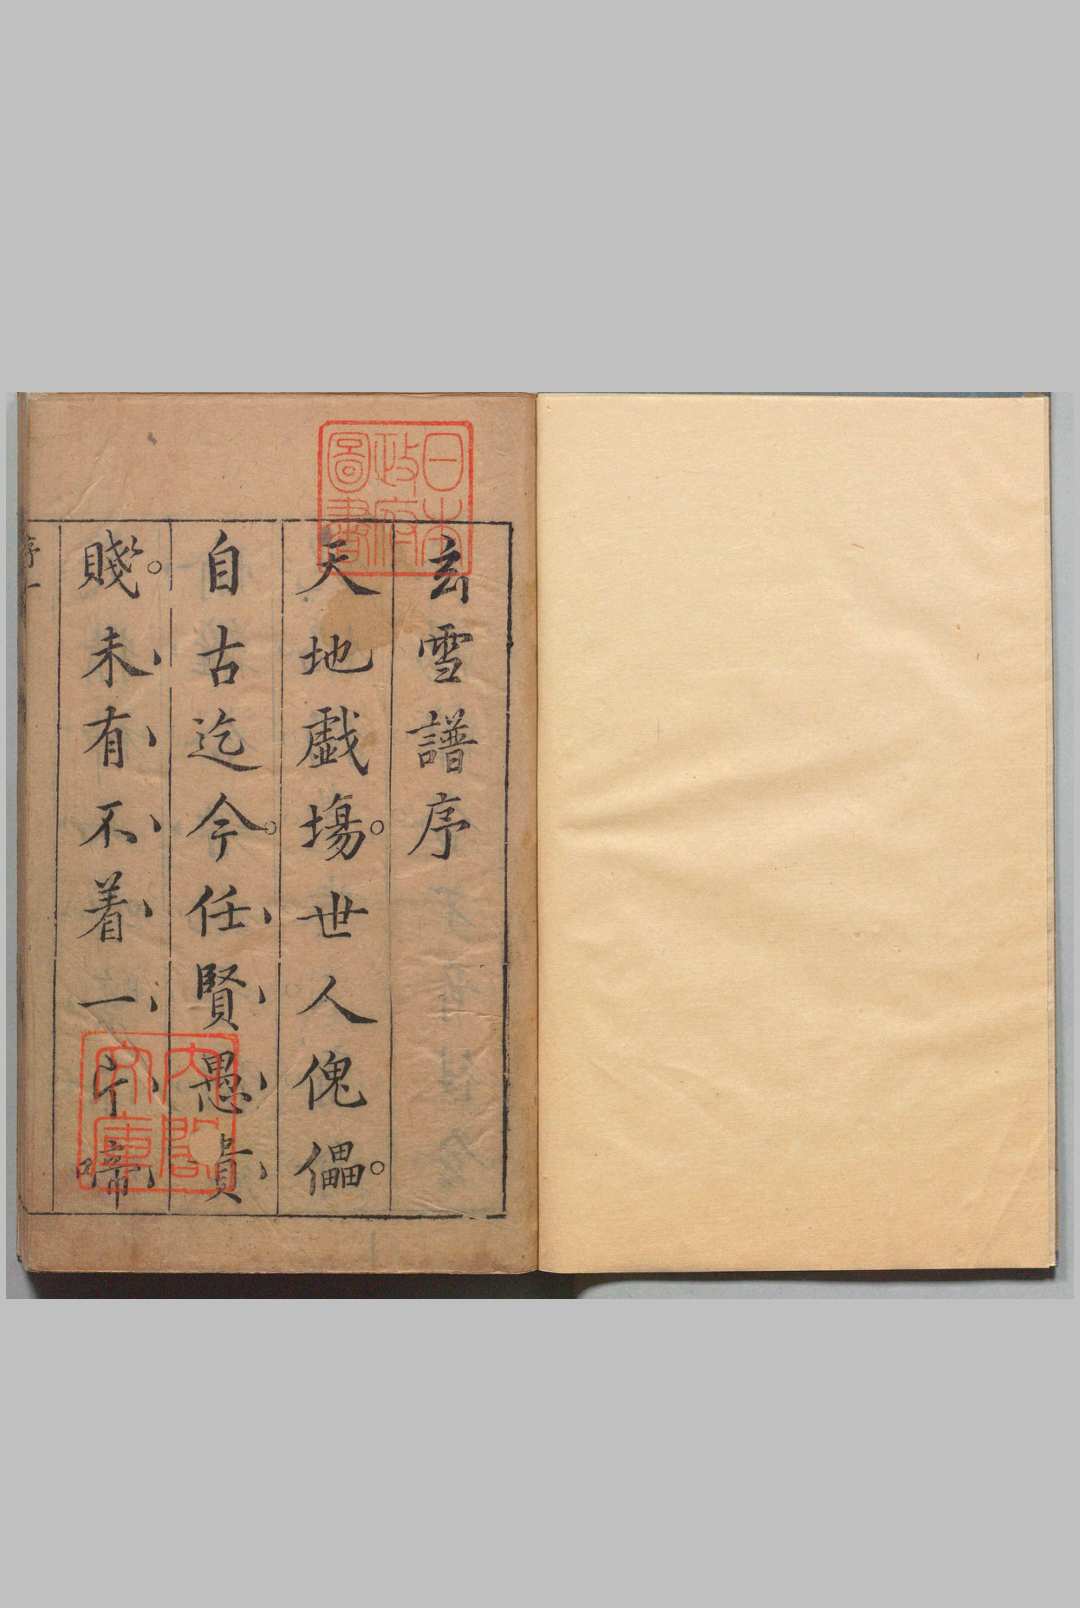 玄雪譜序
天地戯塲。世人傀儡。
自古迄今。任賢愚貴
賤。未有不着一片啼
序一
日本
政府
圖書
内閣
文庫